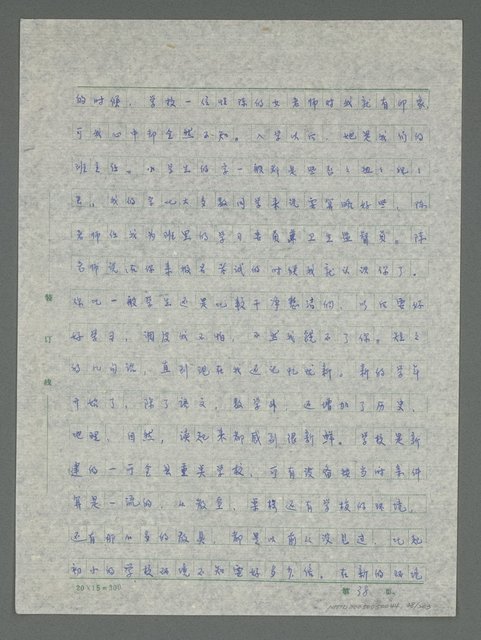 的时候，学校一位姓陈的女老师对我就有印象
可我心中却全然不知。入学以后，她是我们的
班主任。小学生的字一般都是
我的字比大多数同学来说要算略好些，陈
老师任我为班里的学习委员兼卫生监督员。陈
老师说：你来报名考试的时候我就认识你了。
你比一般学生还是比较干净整洁的，
好学习，调皮我不怕，不然我饶不了你。短短
的几句话，直到现在我还记忆犹新。新的学年
开始了，除了语文，数学外，还增加了历史、
地理、自然，读起来都感到很新鲜。学校是新
建的一所全县重点学校，可有设备按当时条件
算是一流的，从教室，桌椅还有学校的环境，
还有那么多的教具，都是以前从没见过，比起
初小的学校环境不知要好多少倍。在新的环境
装
订
线
20×15=300
第38页